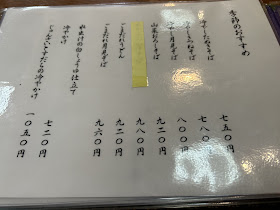 季節のおすすめ
冷やしたぬきそば 七五〇円
冷やしきつねそば 七八〇円
冷やし月見そば 八〇〇円
山菜おろしそば 九二〇円
九八〇円
ごまだれそば 九二〇円
ごまだれうどん 九六〇円
水出汁の白しょうゆ仕立て
冷やかけ 七二〇円
じゅんさいとすだちの冷やかけ 一〇五〇円